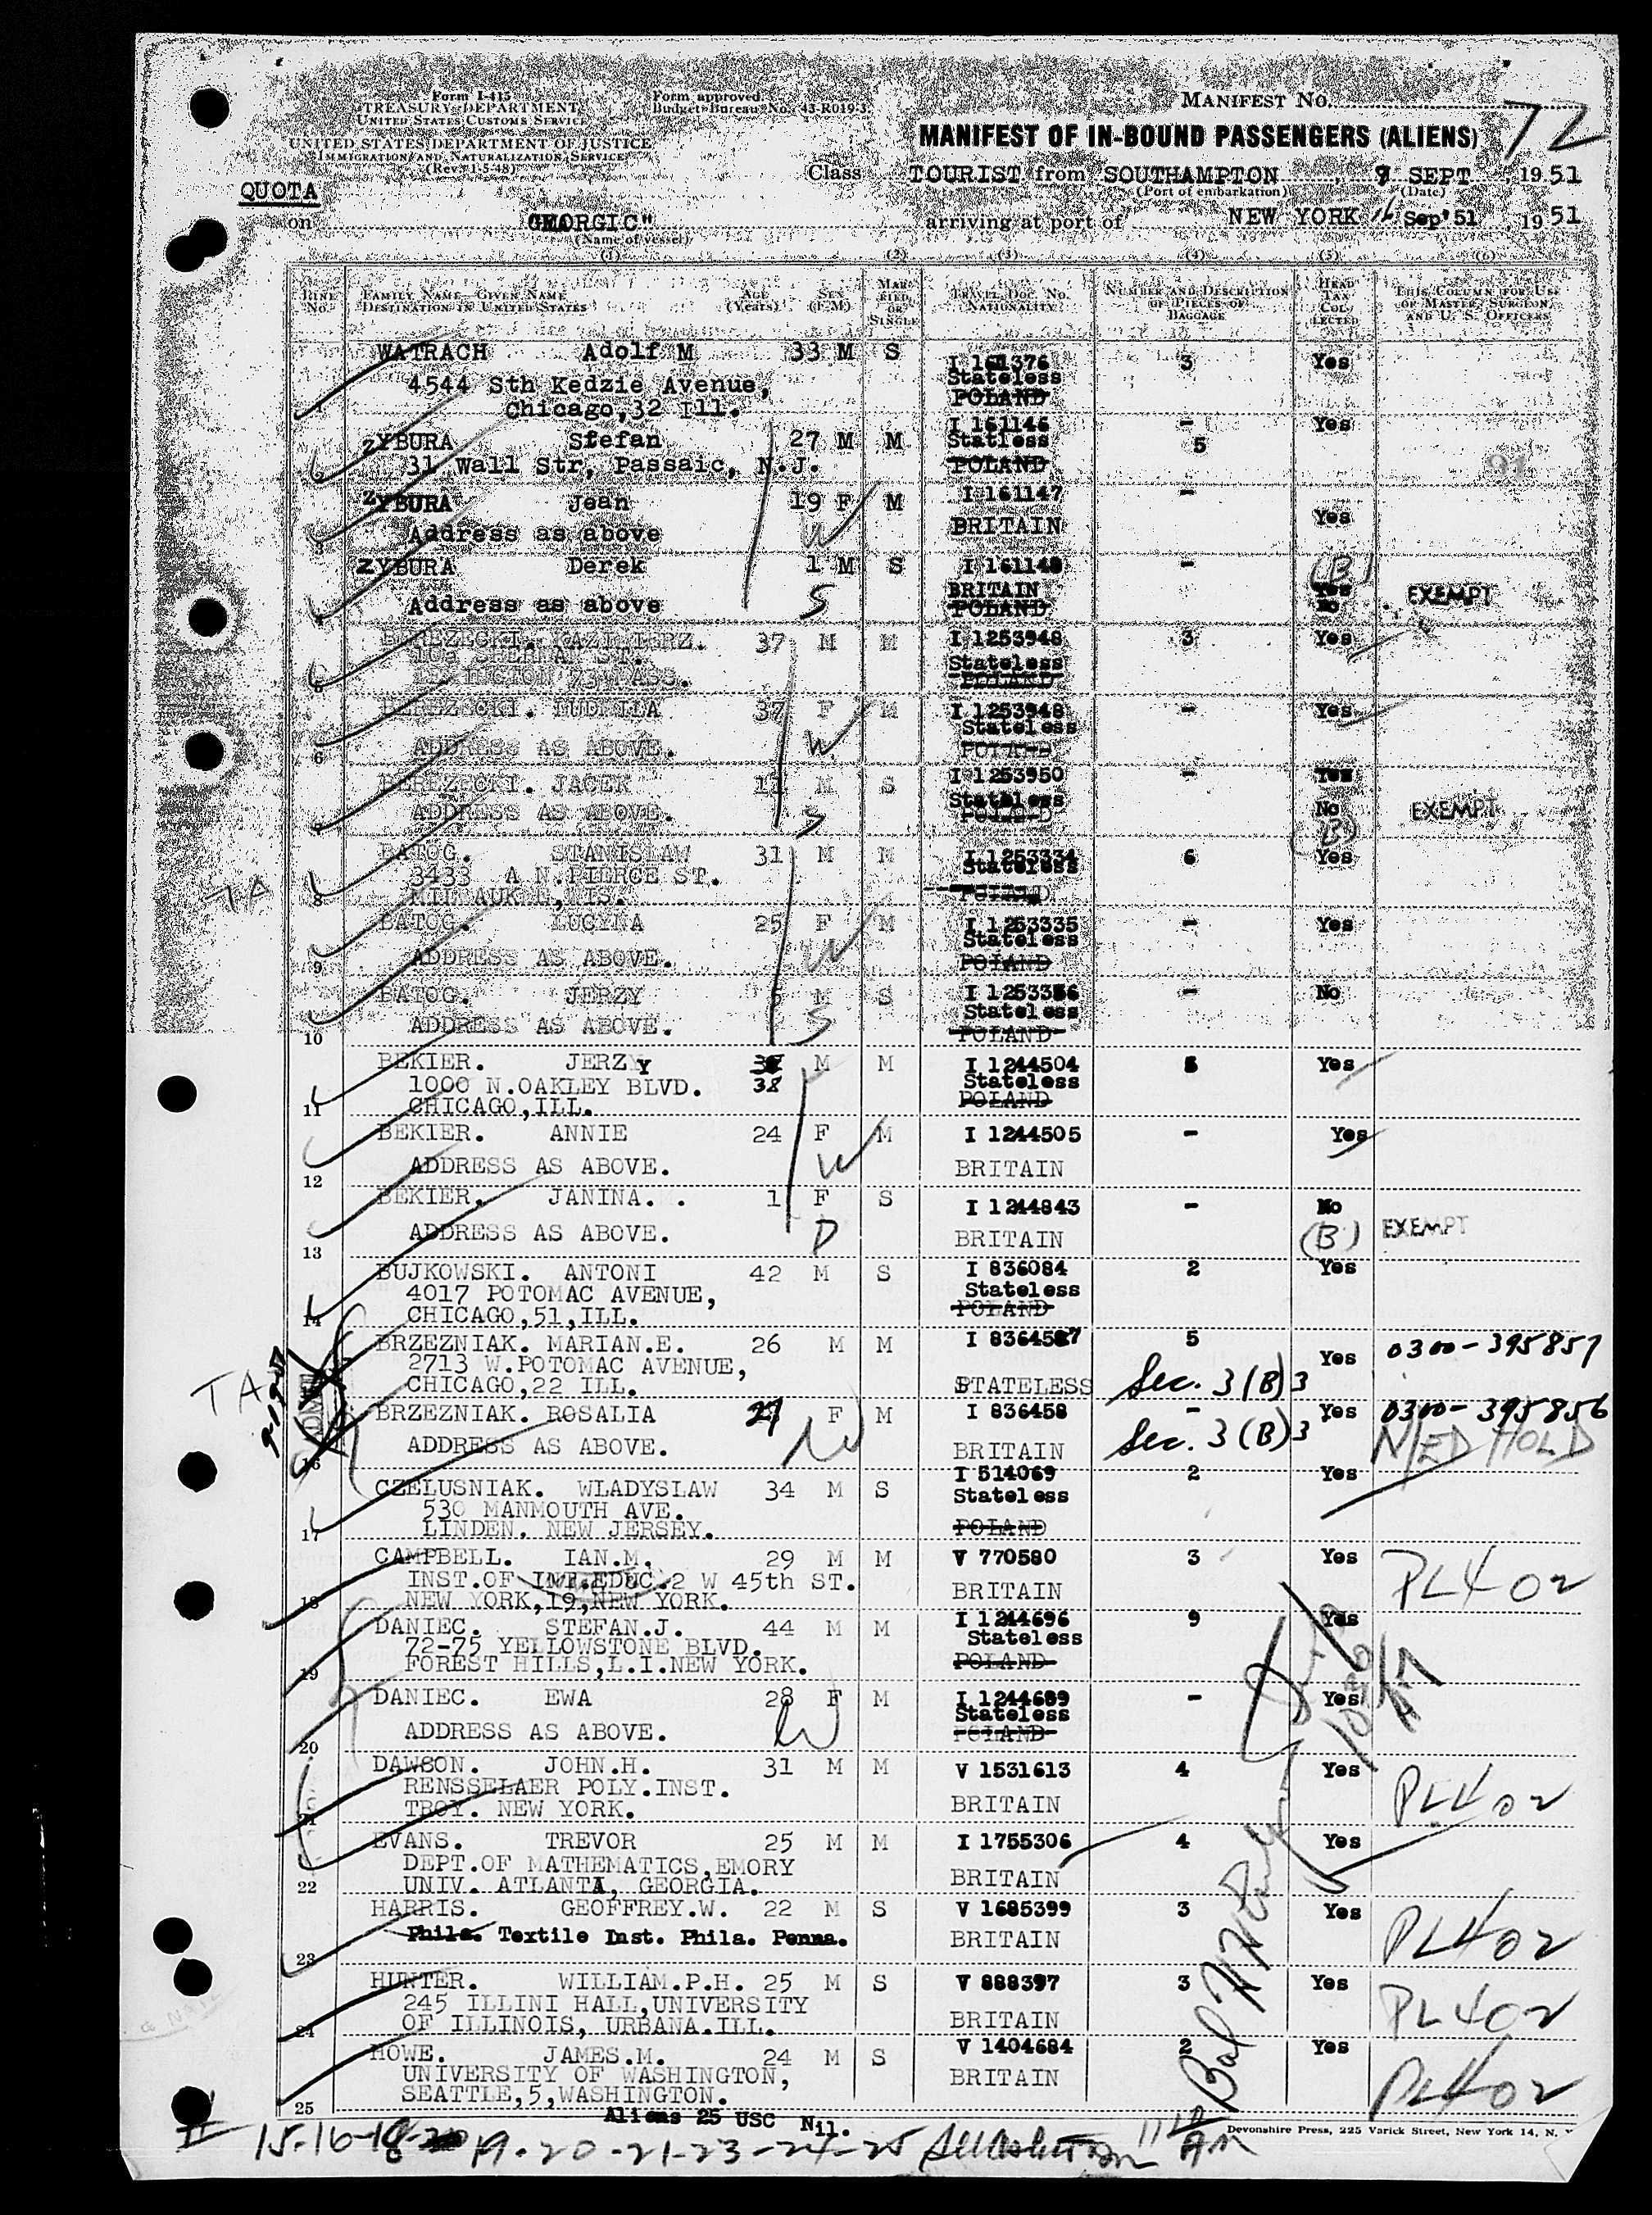 Form I-415
TREASURY DEPARTMENT
UNITED STATES CUSTOMS SERVICE
UNITED STATES DEPARTMENT OF JUSTICE
IMMIGRATION AND NATURALIZATION SERVICE
(Rev. 1-5-48)
Form approved
Budget Bureau No. 43-R019-3
MANIFEST No. 72
MANIFEST OF IN-BOUND PASSENGERS (ALIENS)
QUOTA
Class TOURIST from SOUTHAMPTON, 9 SEPT, 1951
(Port of embarkation) (Date)
on GEORGIC" arriving at port of NEW YORK 16 Sep'51, 1951
(Name of vessel)
(1) (2) (3) (4) (5) (6)
LINE No. FAMILY NAME—GIVEN NAME DESTINATION IN UNITED STATES AGE (Years) SEX (F-M) MARRIED OR SINGLE TRAVEL DOC. No. NATIONALITY NUMBER AND DESCRIPTION OF PIECES OF BAGGAGE HEAD TAX COLLECTED THIS COLUMN FOR USE OF MASTER, SURGEON, AND U. S. OFFICERS
WATRACH Adolf M 33 M S I 161376 3 Yes
4544 Sth Kedzie Avenue, Stateless
Chicago,32 Ill. POLAND
ZYBURA Stefan 27 M M I 161146 - 5 Yes
31 Wall Str, Passaic, N.J. Statless POLAND
ZYBURA Jean 19 F M I 161147 - Yes
Address as above W BRITAIN
ZYBURA Derek 1 M S I 161148 - (B) Yes No EXEMPT
Address as above S BRITAIN POLAND
5 BEREZECKI. KAZIMIERZ. 37 M M I 1253948 3 Yes
Stateless POLAND
6 BEREZECKI. LUDMILA 37 F M I 1253948 - Yes
ADDRESS AS ABOVE. W Stateless POLAND
7 BEREZECKI. JACEK 11 M S I 1253950 - Yes No (B) EXEMPT
ADDRESS AS ABOVE. S Stateless POLAND
8 BATOG. STANISLAW 31 M M I 1253334 6 Yes
3433 A N.PIERCE ST. Stateless
MILWAUKEE, WIS. POLAND
9 BATOG. LUCYNA 25 F M I 1253335 - Yes
ADDRESS AS ABOVE. W Stateless POLAND
10 BATOG. JERZY 5 M S I 1253336 - No
ADDRESS AS ABOVE. S Stateless POLAND
11 BEKIER. JERZY 38 M M I 1244504 5 Yes
1000 N.OAKLEY BLVD. Stateless
CHICAGO,ILL. POLAND
12 BEKIER. ANNIE 24 F M I 1244505 - Yes
ADDRESS AS ABOVE. W BRITAIN
13 BEKIER. JANINA. . 1 F S I 1244843 - No (B) EXEMPT
ADDRESS AS ABOVE. D BRITAIN
14 BUJKOWSKI. ANTONI 42 M S I 836084 2 Yes
4017 POTOMAC AVENUE, Stateless
CHICAGO,51,ILL. POLAND
BRZEZNIAK. MARIAN.E. 26 M M I 836457 5 Yes 0300-395857
2713 W.POTOMAC AVENUE,
CHICAGO,22 ILL. STATELESS Sec. 3(B)3
16 BRZEZNIAK. ROSALIA 27 F M I 836458 - Yes 0300-395856
ADDRESS AS ABOVE. W BRITAIN Sec. 3(B)3 MED HOLD
17 CZELUSNIAK. WLADYSLAW 34 M S I 514069 2 Yes
530 MANMOUTH AVE. Stateless
LINDEN. NEW JERSEY. POLAND
18 CAMPBELL. IAN.M. 29 M M V 770580 3 Yes PL402
INST.OF INT.EDUC.2 W 45th ST. BRITAIN
NEW YORK,19,NEW YORK.
19 DANIEC. STEFAN.J. 44 M M I 1244696 9 Yes
72-75 YELLOWSTONE BLVD. Stateless
FOREST HILLS,L.I.NEW YORK. POLAND
20 DANIEC. EWA 28 F M I 1244689 - Yes
ADDRESS AS ABOVE. W Stateless POLAND
21 DAWSON. JOHN.H. 31 M M V 1531613 4 Yes PL402
RENSSELAER POLY.INST. BRITAIN
TROY. NEW YORK.
22 EVANS. TREVOR 25 M M I 1755306 4 Yes
DEPT.OF MATHEMATICS,EMORY BRITAIN
UNIV. ATLANTA, GEORGIA.
23 HARRIS. GEOFFREY.W. 22 M S V 1685399 3 Yes PL402
Phila. Textile Inst. Phila. Penna. BRITAIN
24 HUNTER. WILLIAM.P.H. 25 M S V 888397 3 Yes PL402
245 ILLINI HALL,UNIVERSITY BRITAIN
OF ILLINOIS, URBANA.ILL.
25 HOWE. JAMES.M. 24 M S V 1404684 2 Yes PL402
UNIVERSITY OF WASHINGTON, BRITAIN
SEATTLE,5,WASHINGTON.
Aliens 25 USC Nil.
15-16-18-19-20-21-23-24-25
Devonshire Press, 225 Varick Street, New York 14, N. Y.